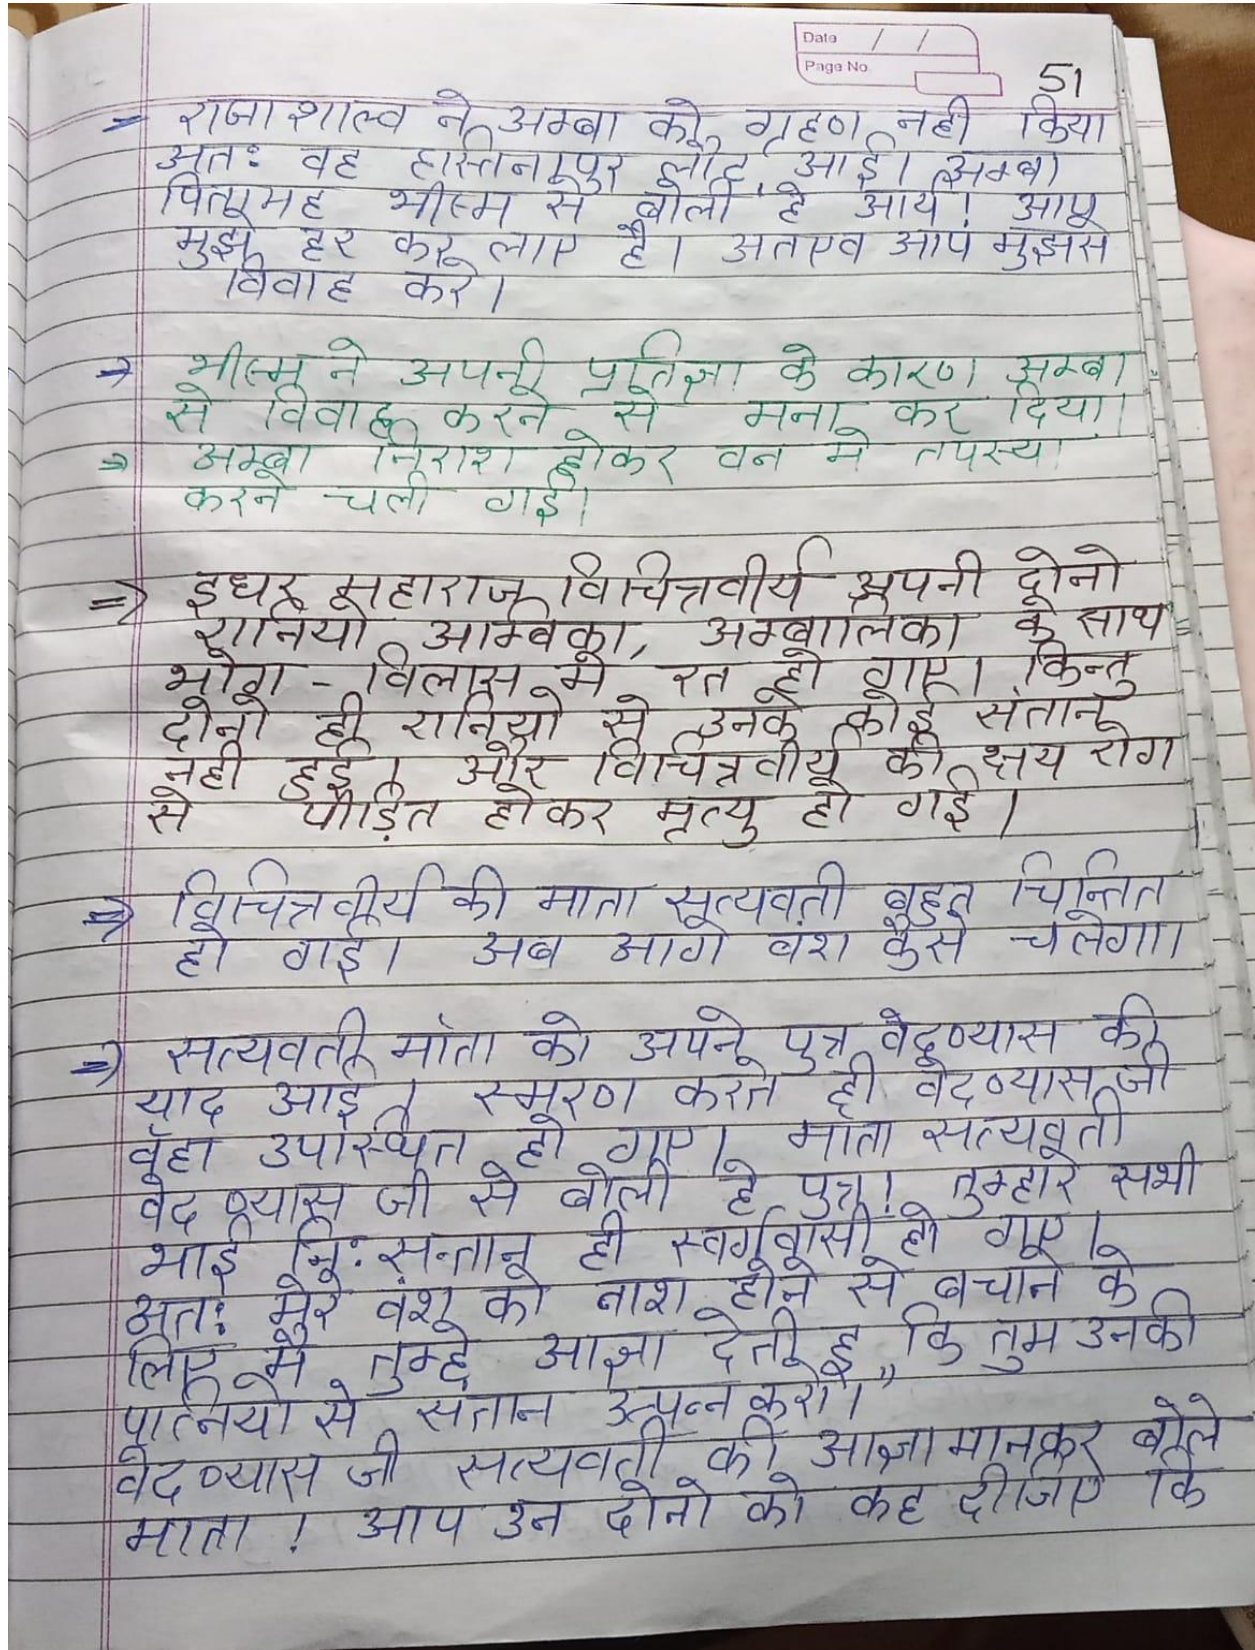 Date / /
Page No.
51
= राजा शाल्व ने अम्बा को ग्रहण नही किया
अतः वह हास्तिनापुर लौट आई। अम्बा
पितामह भीष्म से बोली हे आर्य! आप
मुझे हर कर लाए है। अतएव आप मुझसे
विवाह करे।
→ भीष्म ने अपनी प्रतिज्ञा के कारण अम्बा
से विवाह करने से मना कर दिया।
⇒ अम्बा निराश होकर वन मे तपस्या
करने चली गई।
⇒ इधर महाराज विचित्रवीर्य अपनी दोनो
रानियो अम्बिका, अम्बालिका के साथ
भोग - विलास मे रत हो गए। किन्तु
दोनो ही रानियो से उनके कोई संतान
नही हुई। और विचित्रवीर्य की क्षय रोग
से पीड़ित होकर मृत्यु हो गई।
⇒ विचित्रवीर्य की माता सत्यवती बहुत चिन्तित
हो गई। अब आगे वंश कैसे चलेगा।
⇒ सत्यवती मॉता को अपने पुत्र वेदव्यास की
याद आई। स्मरण करते ही वेदव्यास जी
वॅहा उपस्थित हो गए। माता सत्यवती
वेद व्यास जी से बोली हे पुत्र! तुम्हारे सभी
भाई निःसन्तान ही स्वर्गवासी हो गए।
अतः मेरे वंश को नाश होने से बचाने के
लिए मै तुम्हे आज्ञा देती हू कि तुम उनकी
पत्नियो से सतान उत्पन्न करो।”
वेद व्यास जी सत्यवती की आज्ञा मानकर बोले
माता ! आप उन दोनो को कह दीजिए कि